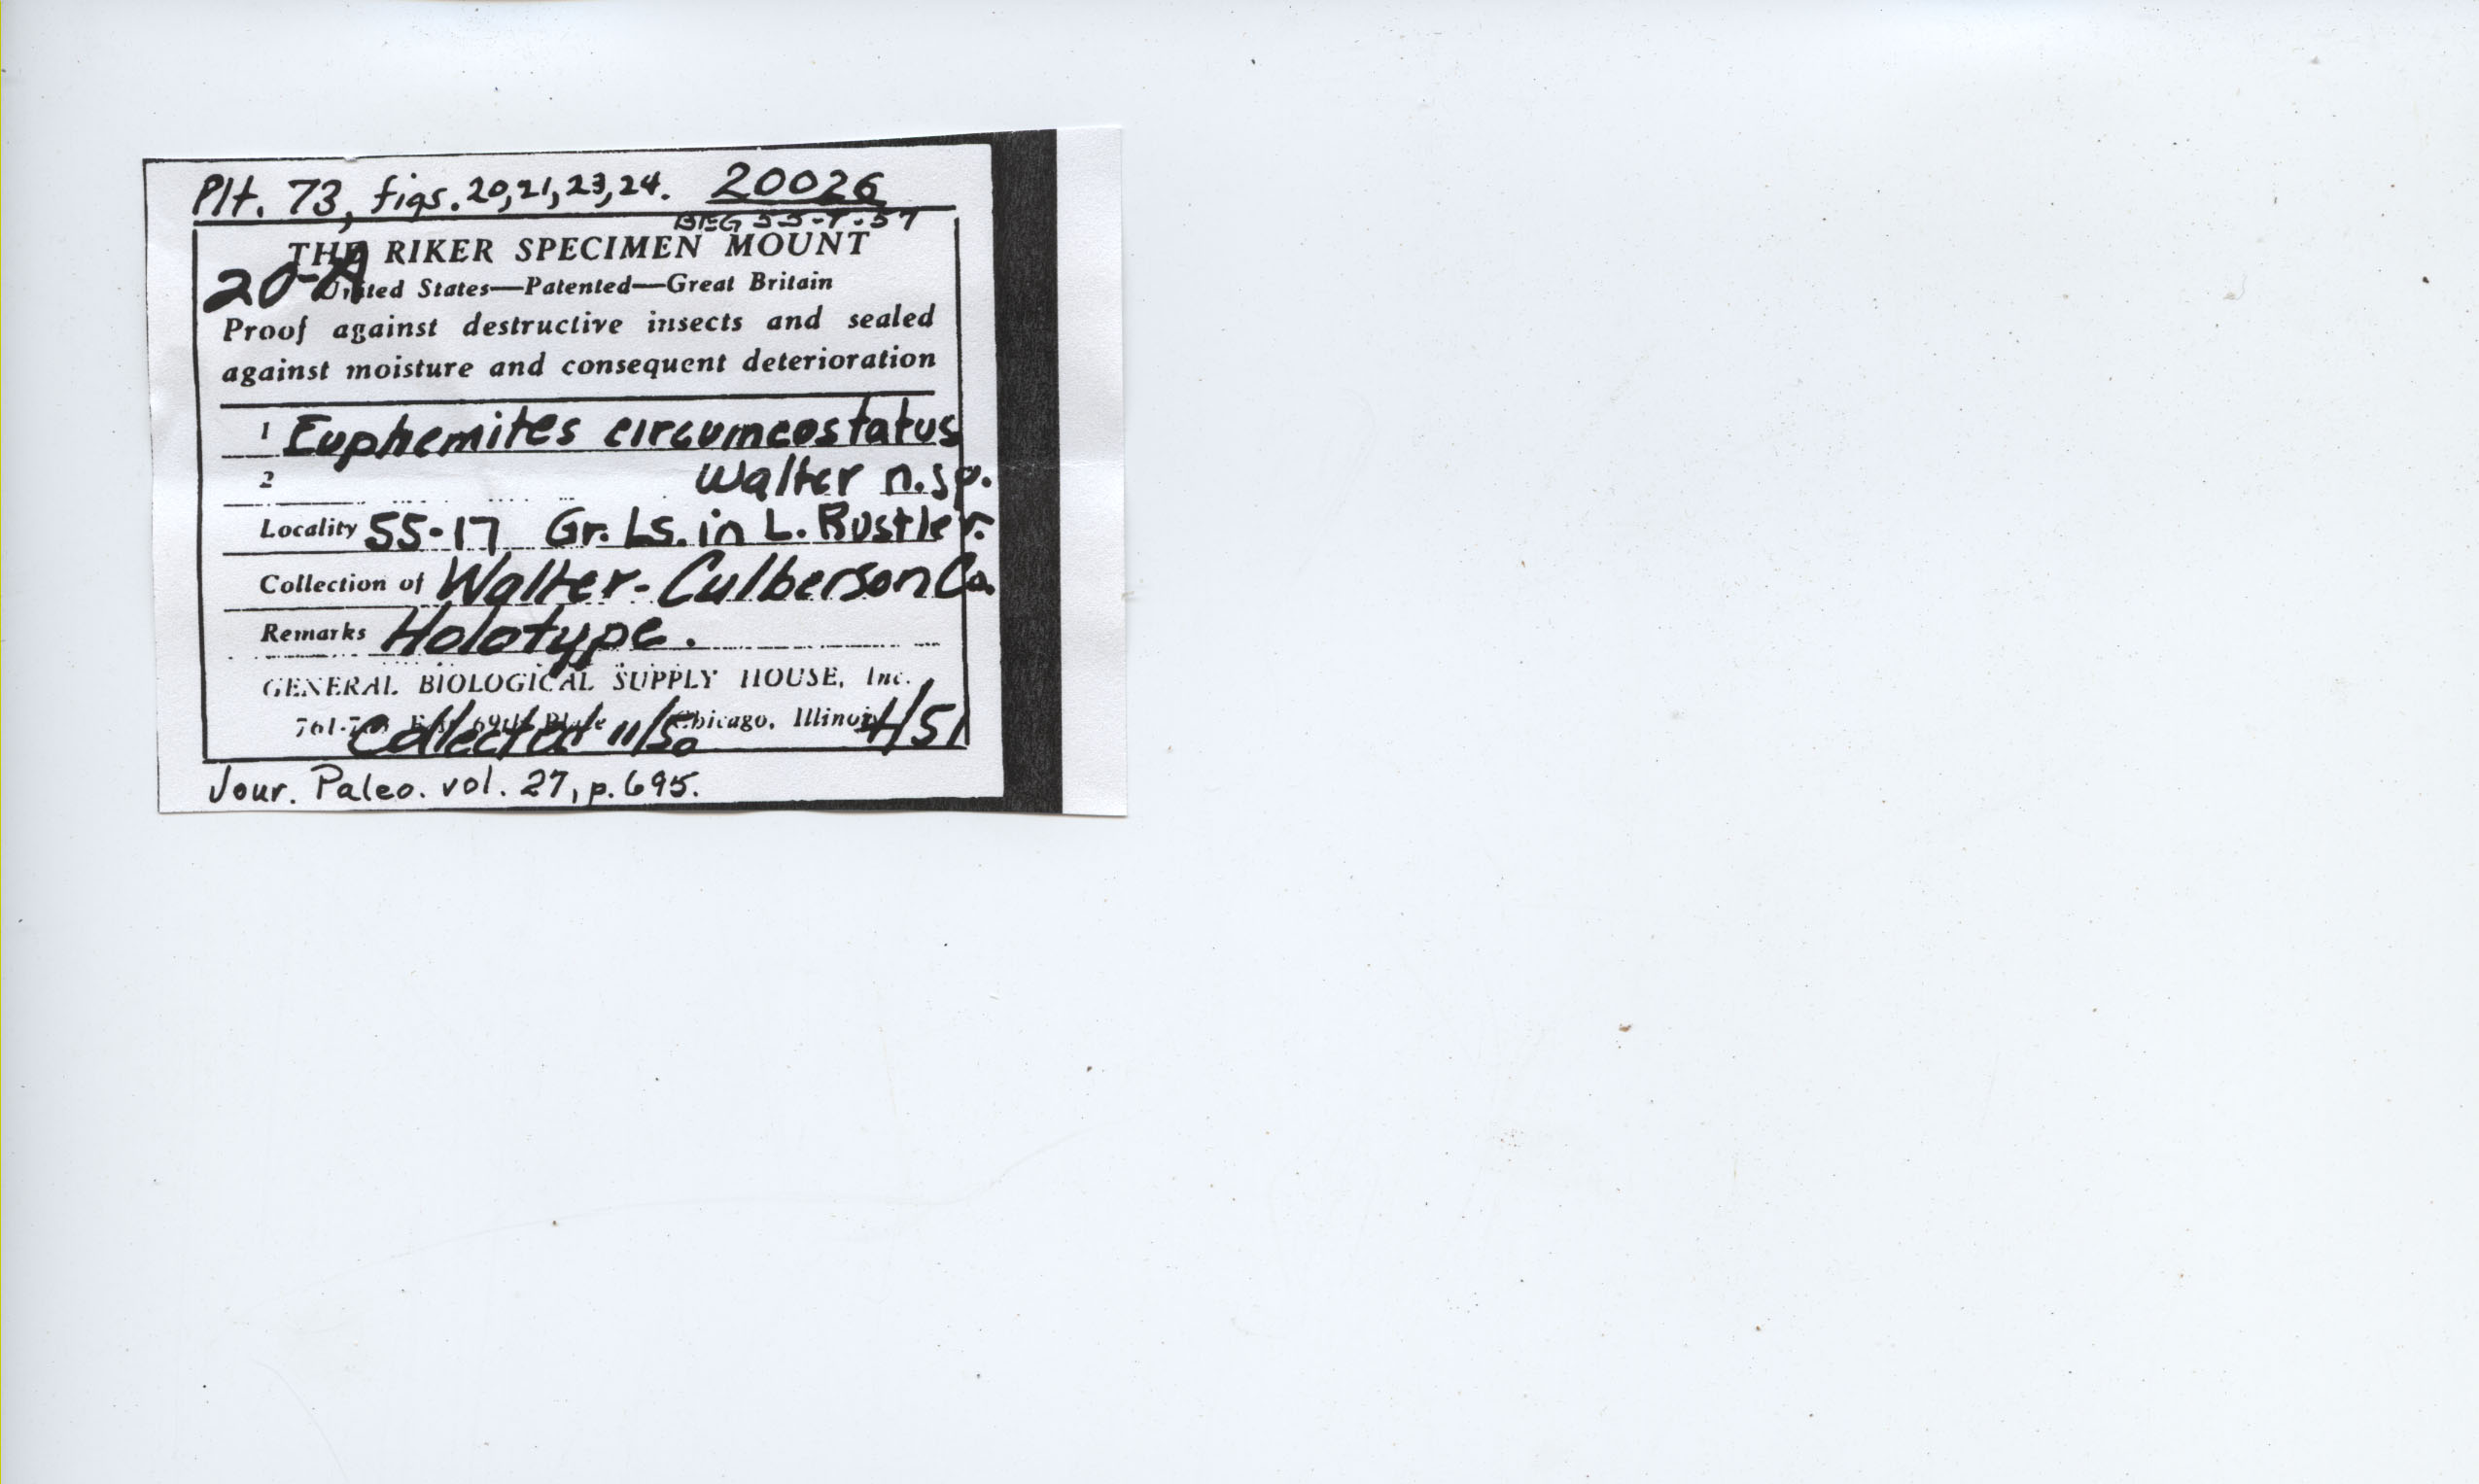 Plt. 73, figs. 20,21,23,24. 20026
BEG 55-T-57
THE RIKER SPECIMEN MOUNT
20-A
United States—Patented—Great Britain
Proof against destructive insects and sealed
against moisture and consequent deterioration
1 Euphemites circumcostatus
2 Walter n.sp.
Locality 55-17 Gr. Ls. in L. Rustler.
Collection of Walter-Culberson Co.
Remarks Holotype.
GENERAL BIOLOGICAL SUPPLY HOUSE, Inc.
69th Place Chicago, Illinois
Collected 11/50 4/51
Jour. Paleo. vol. 27, p. 695.